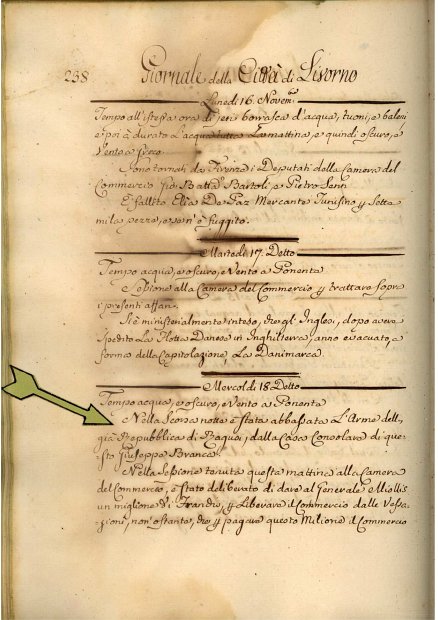 238 Giornale della Città di Livorno
Lunedi 16. Novem.
Tempo all'istessa ora di jeri borrasca d'acqua, tuoni, e baleni
e poi à durato L'acqua tutta La mattina, e quindi oscuro, e
Vento a
Sono tornati da Firenze i Deputati della Camera del
Commercio Gio. Batta Bartoli, e Pietro Senn
È fallito Elia De Paz Mercante Tunisino p setta
mila pezze, e se n'è fuggito.
Martedi 17. Detto
Tempo acqua, e oscuro, e Vento a Ponente
Sessione alla Camera del Commercio p trattare sopra
i presenti affari.
Si è ministerialmente inteso, che gl'Inglesi, dopo avere
spedito La Flotta Danese in Inghilterra, anno evacuato, a
forma della Capitolazione, La Danimarca.
Mercoldi 18. Detto
Tempo acqua, e oscuro, e Vento a Ponente
Nella Scorsa notte è stata abbassata L'Arme dell
già Repubblica di Ragusa, dalla Casa Consolare di que-
sto Giuseppe Branca.
Nella Sessione tenuta questa mattina alla Camera
del Commercio, è stato deliberato di dare al Generale Miollis
un miglione di Franchi, p Liberare il Commercio dalle Vessa-
zioni, non ostante, che p pagare questo Milione il Commercio